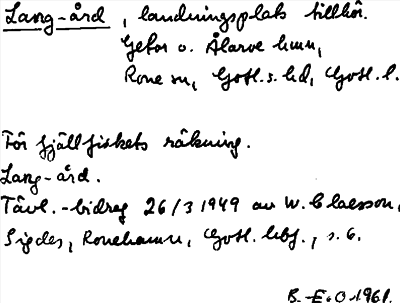 Lang-ård, landningsplats tillhör.
Gefor o. Ålarve hmn,
Rone sn, Gotl. s. hd, Gotl. l.
För fjällfiskets räkning.
Lang-ård.
Tävl.-bidrag 26/3 1949 av W. Claesson,
Sigdes, Ronehamn, Gotl. , s. 6.
B. E. O. 1961.